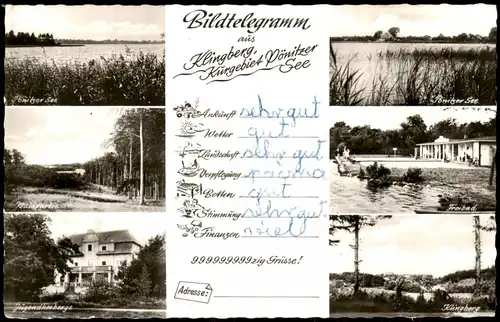 Bildtelegramm
aus
Klingberg,
Kurgebiet Pönitzer
See
Pönitzer See
Pönitzer See
Ankunft sehr gut
Wetter gut
Landschaft sehr gut
Verpflegung prima
Betten gut
Stimmung sehr gut
Finanzen viel
999999999zig Grüsse!
Adresse:
Freibad
Jugendherberge
Klingberg